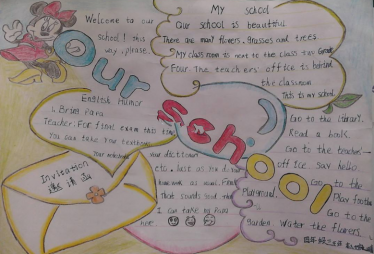 Welcome to our
school! This
way, please.
My school
Our school is beautiful
There are many flowers, grasses and trees.
My class room is next to the class two Grade
Four. The teachers' office is behind
the classroom
This is my school.
Our school
English Humor
1. Bring Papa
Teacher: For final exam this time
You can take the textbook,
your notebook
your dictionary
etc. Just as
homework as usual. Final
that sounds
I can take my Papa
here
Invitation
邀请函
Go to the library.
Read a book.
Go to the teachers'
office. Say hello.
Go to the
Playground.
Play football
Go to the
garden. Water the flowers.